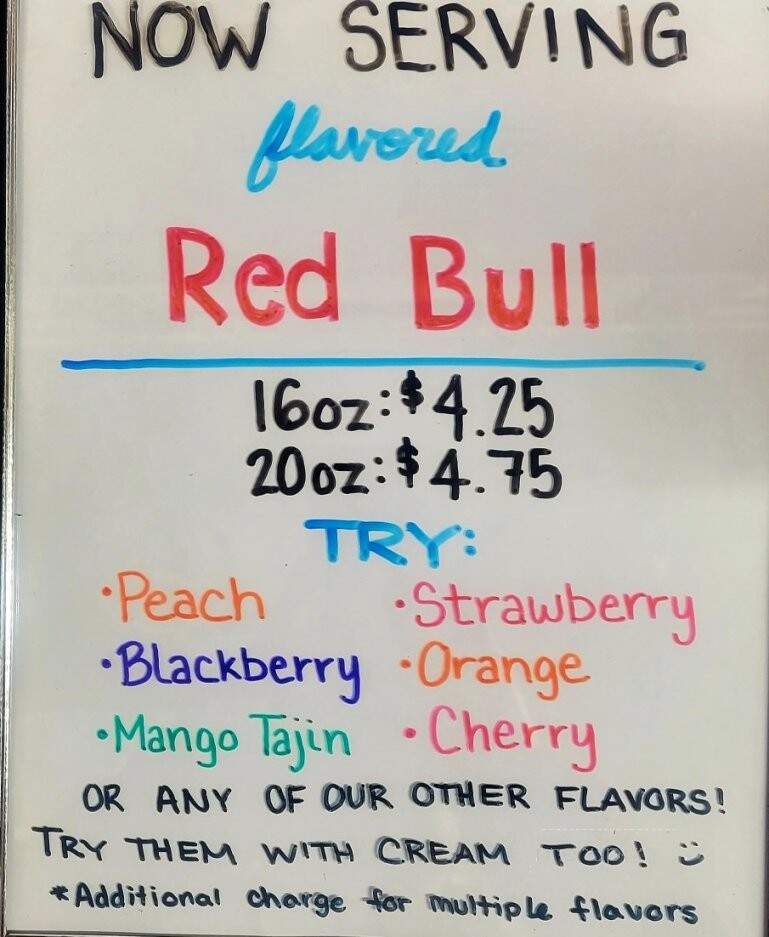 NOW SERVING
flavored
Red Bull
16oz: $4.25
20oz: $4.75
TRY:
•Peach •Strawberry
•Blackberry •Orange
•Mango Tajin •Cherry
OR ANY OF OUR OTHER FLAVORS!
TRY THEM WITH CREAM TOO! :)
*Additional charge for multiple flavors